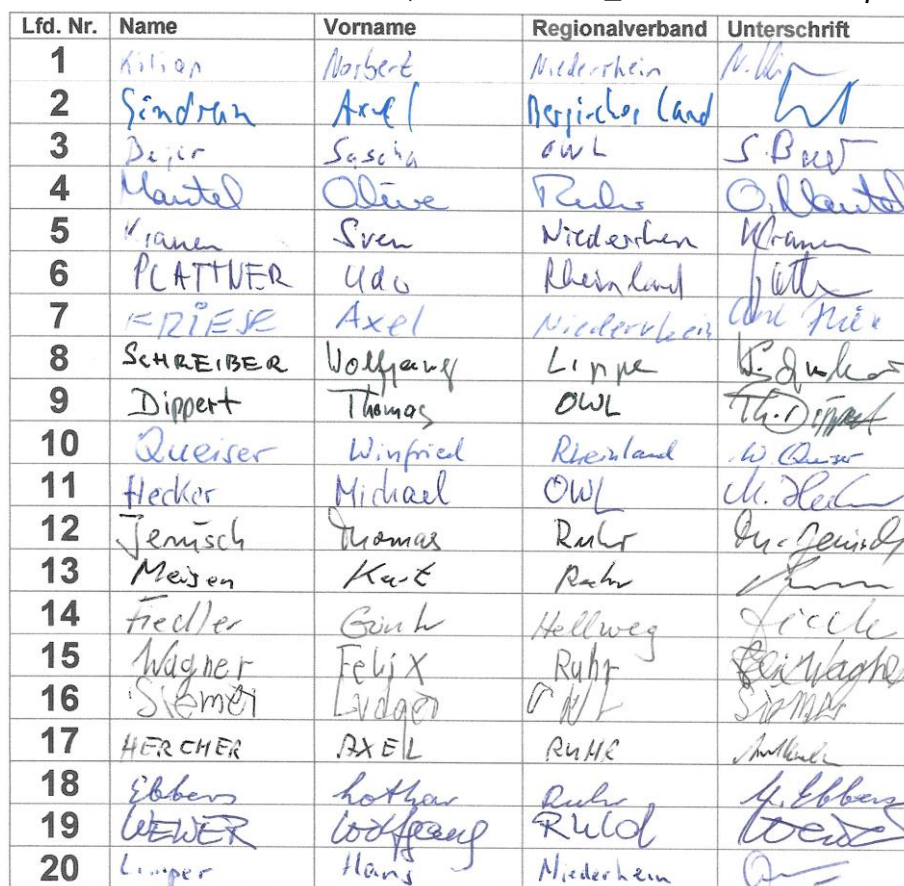 Lfd. Nr. Name Vorname Regionalverband Unterschrift
1 Kilian Norbert Niederrhein
2 Axel Bergisches Land
3 Sascha OWL
4 Mantel Ruhr O. Mantel
5 Kranen Sven Niederrhein Kranen
6 PLATTNER Udo Rheinland
7 FRIESE Axel Niederrhein
8 SCHREIBER Wolfgang Lippe
9 Dippert Thomas OWL Th. Dippert
10 Queiser Winfried Rheinland W. Queiser
11 Hecker Michael OWL M. Hecker
12 Jenusch Thomas Ruhr
13 Meisen Kurt Ruhr
14 Fiedler Hellweg
15 Wagner Felix Ruhr Felix Wagner
16 Ludger OWL
17 HERCHER AXEL RUHR
18 Ebbers Lothar Ruhr Ebbers
19 WEWER Wolfgang
20 Limper Hans Niederrhein